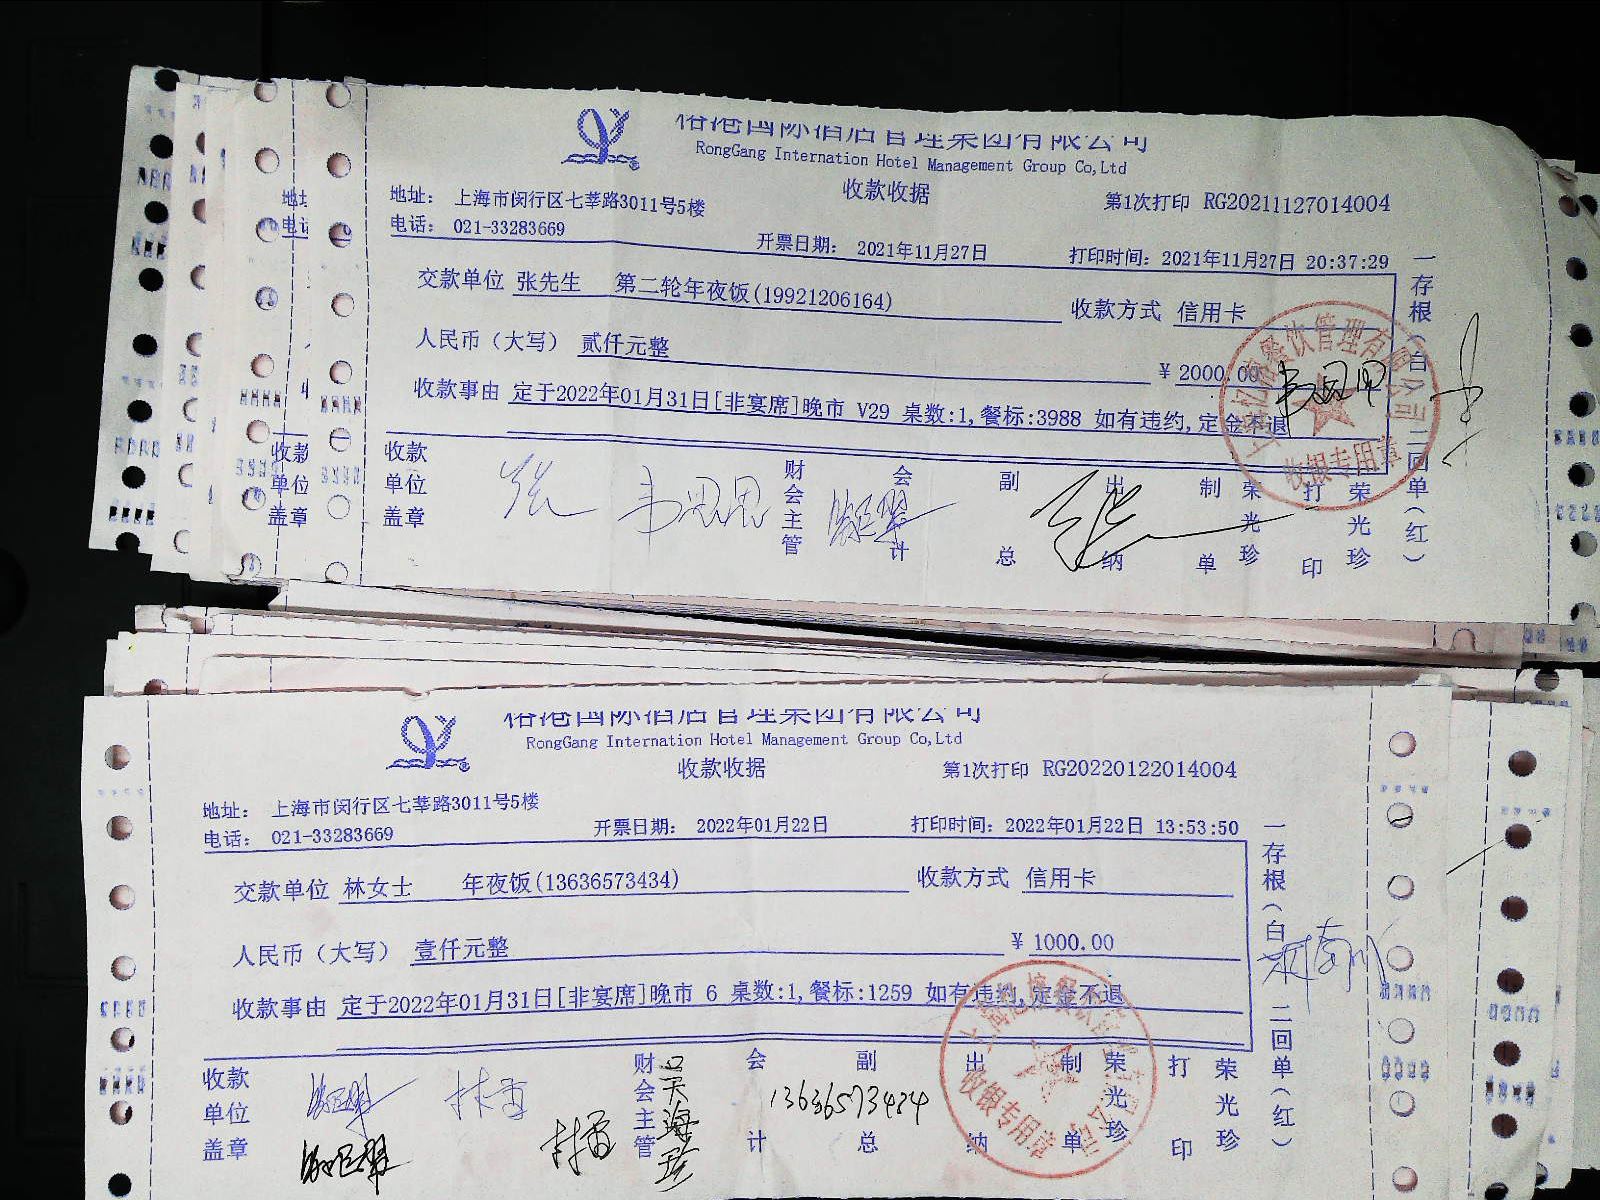 国际酒店管理集团有限公司
RongGang Internation Hotel Management Group Co,Ltd
收款收据
第1次打印 RG20211127014004
地址： 上海市闵行区七莘路3011号5楼
电话： 021-33283669
开票日期： 2021年11月27日
打印时间：2021年11月27日 20:37:29
交款单位 张先生 第二轮年夜饭(19921206164)
收款方式 信用卡
人民币（大写） 贰仟元整
￥2000.00
收款事由 定于2022年01月31日[非宴席]晚市 V29 桌数:1,餐标:3988 如有违约,定金不退
收款单位盖章
财会主管
会计
副总
出纳
制单 荣光珍
打印 荣光珍
一存根（白） 二回单（红）
餐饮管理有限公司
收银专用章
张
国际酒店管理集团有限公司
RongGang Internation Hotel Management Group Co,Ltd
收款收据
第1次打印 RG20220122014004
地址： 上海市闵行区七莘路3011号5楼
电话： 021-33283669
开票日期： 2022年01月22日
打印时间：2022年01月22日 13:53:50
交款单位 林女士 年夜饭(13636573434)
收款方式 信用卡
人民币（大写） 壹仟元整
￥1000.00
收款事由 定于2022年01月31日[非宴席]晚市 6 桌数:1,餐标:1259 如有违约,定金不退
收款单位盖章
财会主管
会计
副总
出纳
制单 荣光珍
打印 荣光珍
一存根（白） 二回单（红）
收银专用章
13636573434